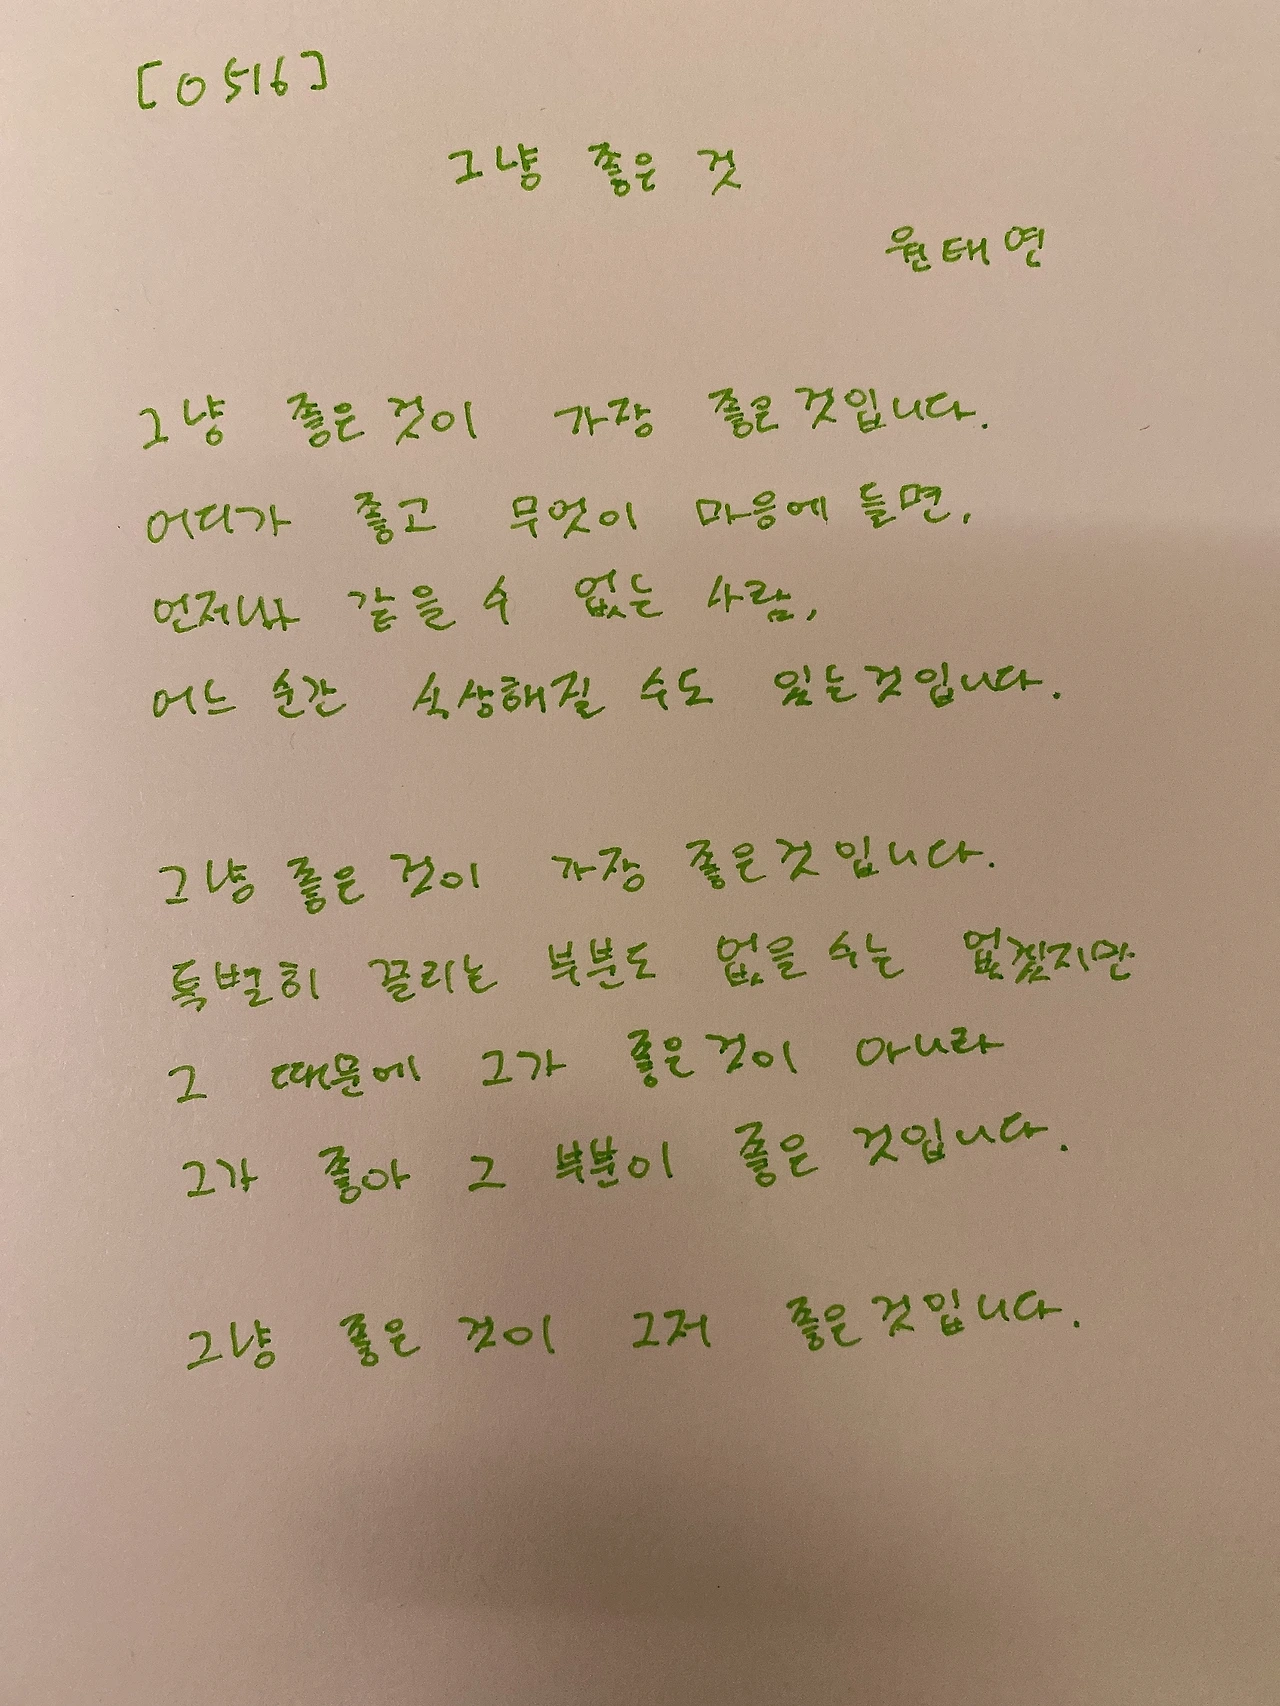 [0516]
그냥 좋은 것
원태연
그냥 좋은 것이 가장 좋은 것입니다.
어디가 좋고 무엇이 마음에 들면,
언제나 같을 수 없는 사람,
어느 순간 식상해질 수도 있는 것입니다.
그냥 좋은 것이 가장 좋은 것입니다.
특별히 끌리는 부분도 없을 수는 없겠지만
그 때문에 그가 좋은 것이 아니라
그가 좋아 그 부분이 좋은 것입니다.
그냥 좋은 것이 그저 좋은 것입니다.